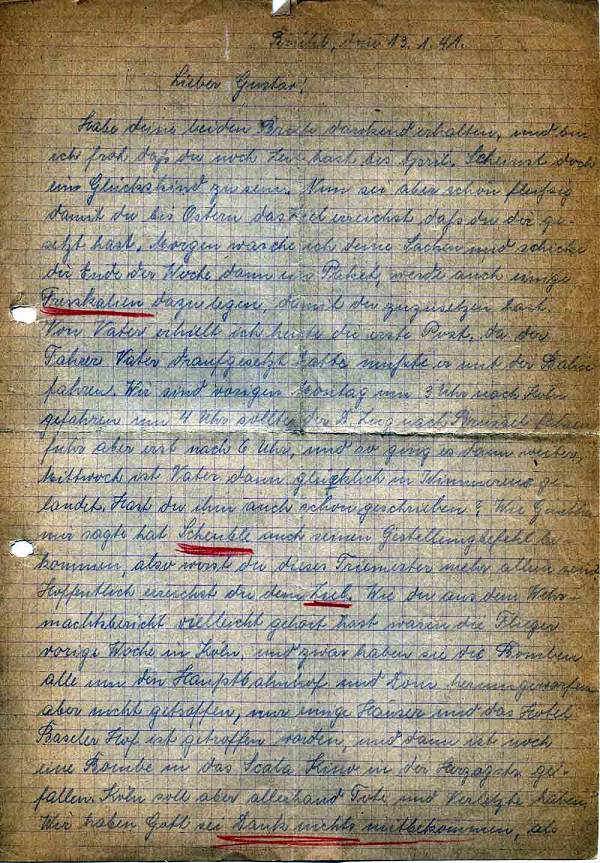 Brühl, den 13.1.41.
Lieber Gustav!
Habe deine beiden Briefe dankend erhalten, und bin
ich froh daß du noch Zeit hast bis April. Scheinst doch
ein Glückskind zu sein. Nun sei aber schon fleißig
damit du bis Ostern das Ziel erreichst daß du dir ge-
setzt hast. Morgen wasche ich deine Sachen und schicke
dir Ende der Woche dann ein Paket, werde auch einige
Fresskalien dazulegen, damit du zuzusetzen hast.
Von Vater erhielt ich heute die erste Post, da der
Fahrer Vater draufgesetzt hatte mußte er mit der Bahn
fahren. Wir sind vorigen Montag um 3 Uhr nach Köln
gefahren um 4 Uhr sollte der D. Zug nach Brüssel
fuhr aber erst nach 6 Uhr, und so ging es dann weiter,
Mittwoch ist Vater dann glücklich in ge-
landet. Hast du ihm auch schon geschrieben? Wie
mir sagte hat Scheuble auch seinen Gestellungsbefehl be-
kommen, also wirst du dieses Triemester mehr allein sein
Hoffentlich erreichst du dein Ziel. Wie du aus dem Wehr-
machtsbericht vielleicht gehört hast waren die Flieger
vorige Woche in Köln, und zwar haben sie die Bomben
alle um den Hauptbahnhof und Dom herumgeworfen
aber nicht getroffen, nur einige Häuser und das Hotel
Baseler Hof ist getroffen worden, und dann ist noch
eine Bombe in das Scala Kino in der Herzogstr. ge-
fallen. Köln soll aber allerhand Tote und Verletzte haben.
Wir haben Gott sei Dank nichts mitbekommen, als